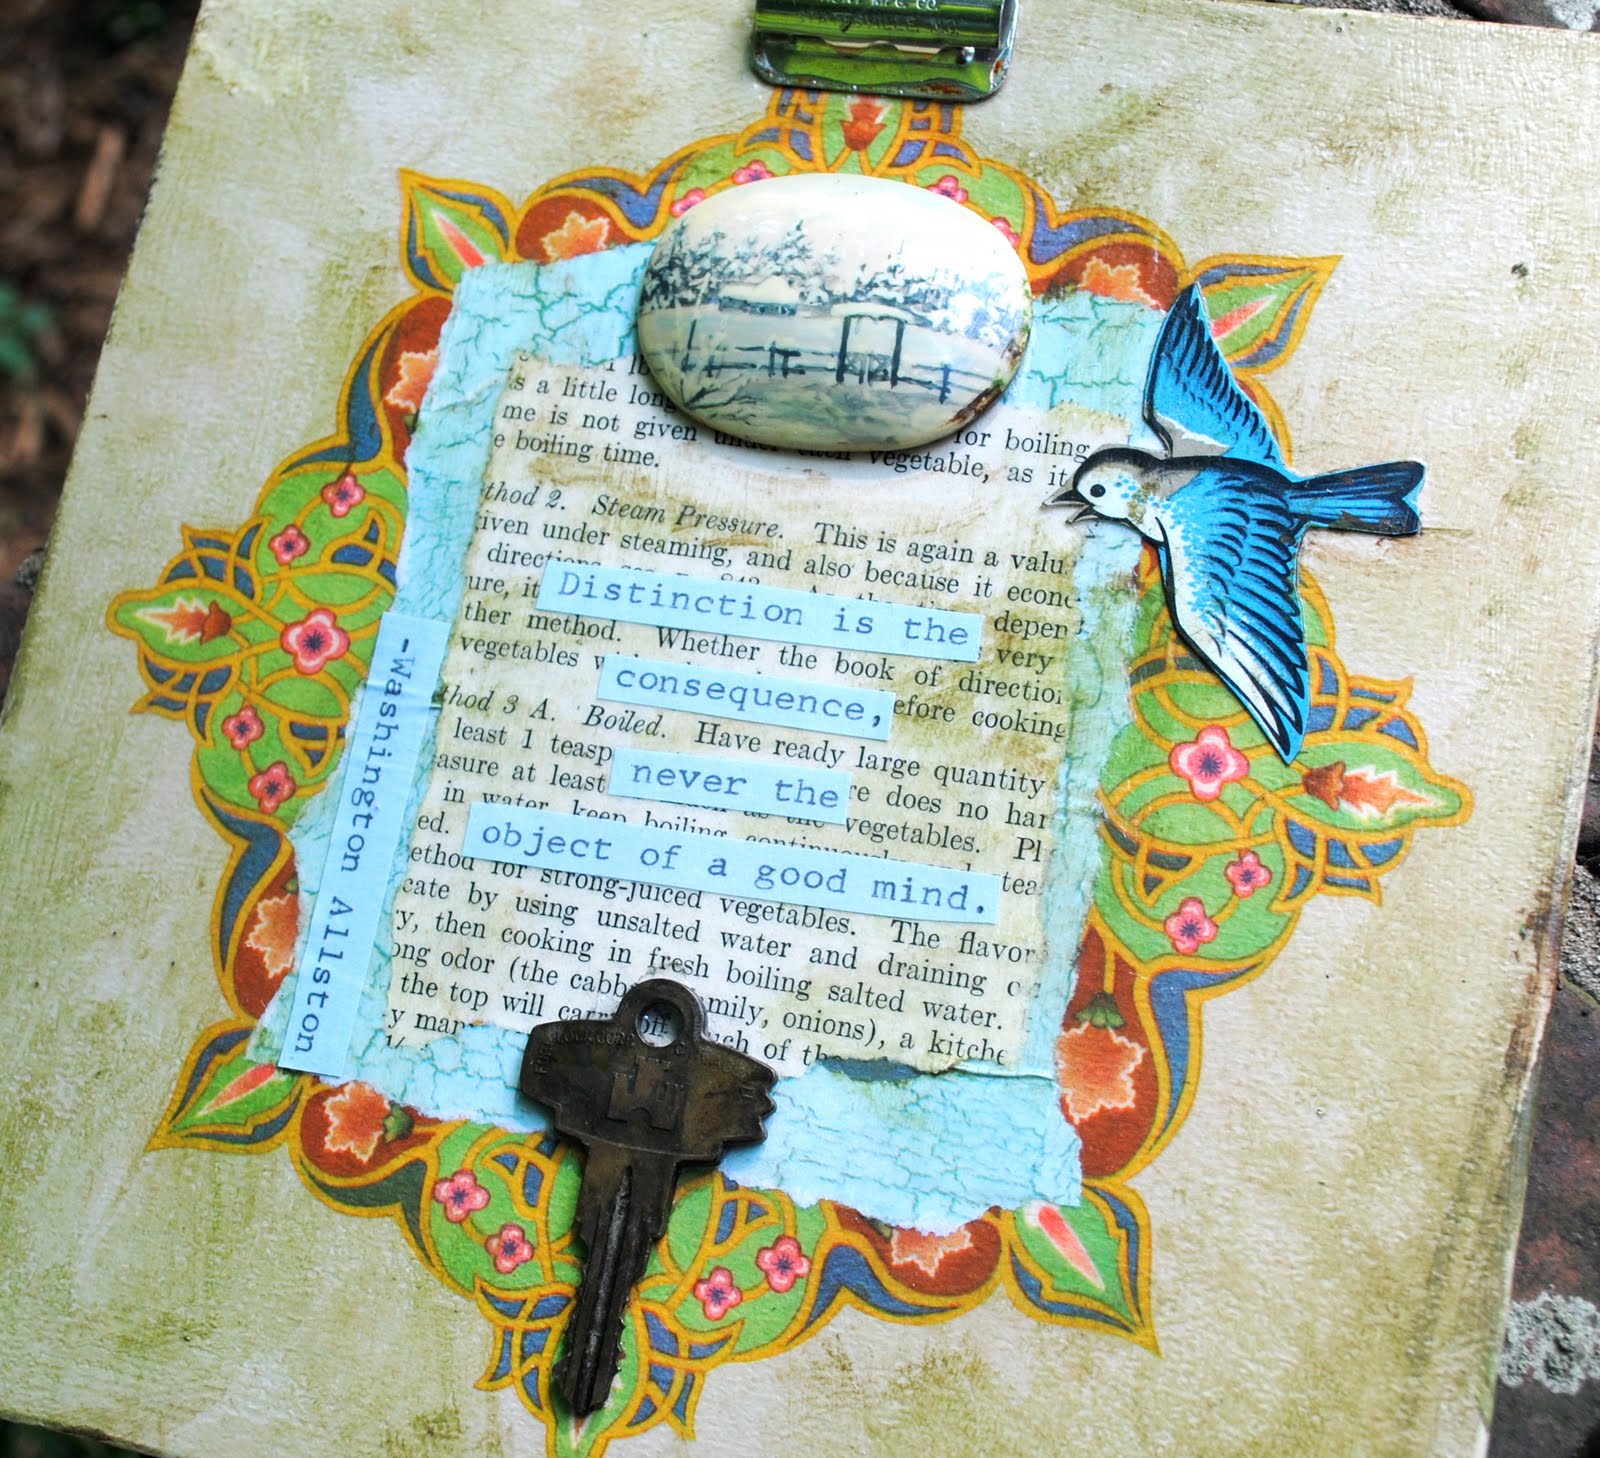 MFG. CO.
s a little long
me is not given under each vegetable, as it
for boiling
e boiling time.
thod 2. Steam Pressure. This is again a valu
iven under steaming, and also because it econo
directions, see
depen
ure, it
Distinction is the
very
ther method. Whether the book of direction
vegetables
consequence,
efore cooking
thod 3 A. Boiled. Have ready large quantity
least 1 teasp
never the
re does no har
asure at least
vegetables. Pl
in water, keep boiling continuously
tea
ed.
object of a good mind.
ethod for strong-juiced vegetables. The flavor
cate by using unsalted water and draining o
y, then cooking in fresh boiling salted water.
ong odor (the cabb amily, onions), a kitche
the top will carry off uch of the
y man
-Washington Allston
LOCK CORP.